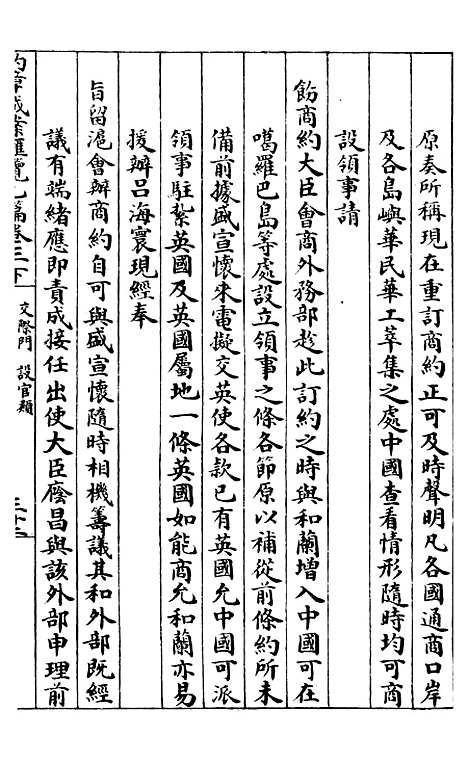 原奏所稱現在重訂商約正可及時聲明凡各國通商口岸
及各島嶼華民華工萃集之處中國查看情形隨時均可商
設領事請
飭商約大臣會商外務部趁此訂約之時與和蘭增入中國可在
噶羅巴島等處設立領事之條各節原以補從前條約所未
備前據盛宣懷來電擬交英使各款已有英國允中國可派
領事駐紮英國及英國屬地一條英國如能商允和蘭亦易
援辦呂海寰現經奉
旨留滬會辦商約自可與盛宣懷隨時相機籌議其和外部既經
議有端緒應即責成接任出使大臣廕昌與該外部申理前
約章成案匯覽乙篇卷三下
交際門 設官類
三十三